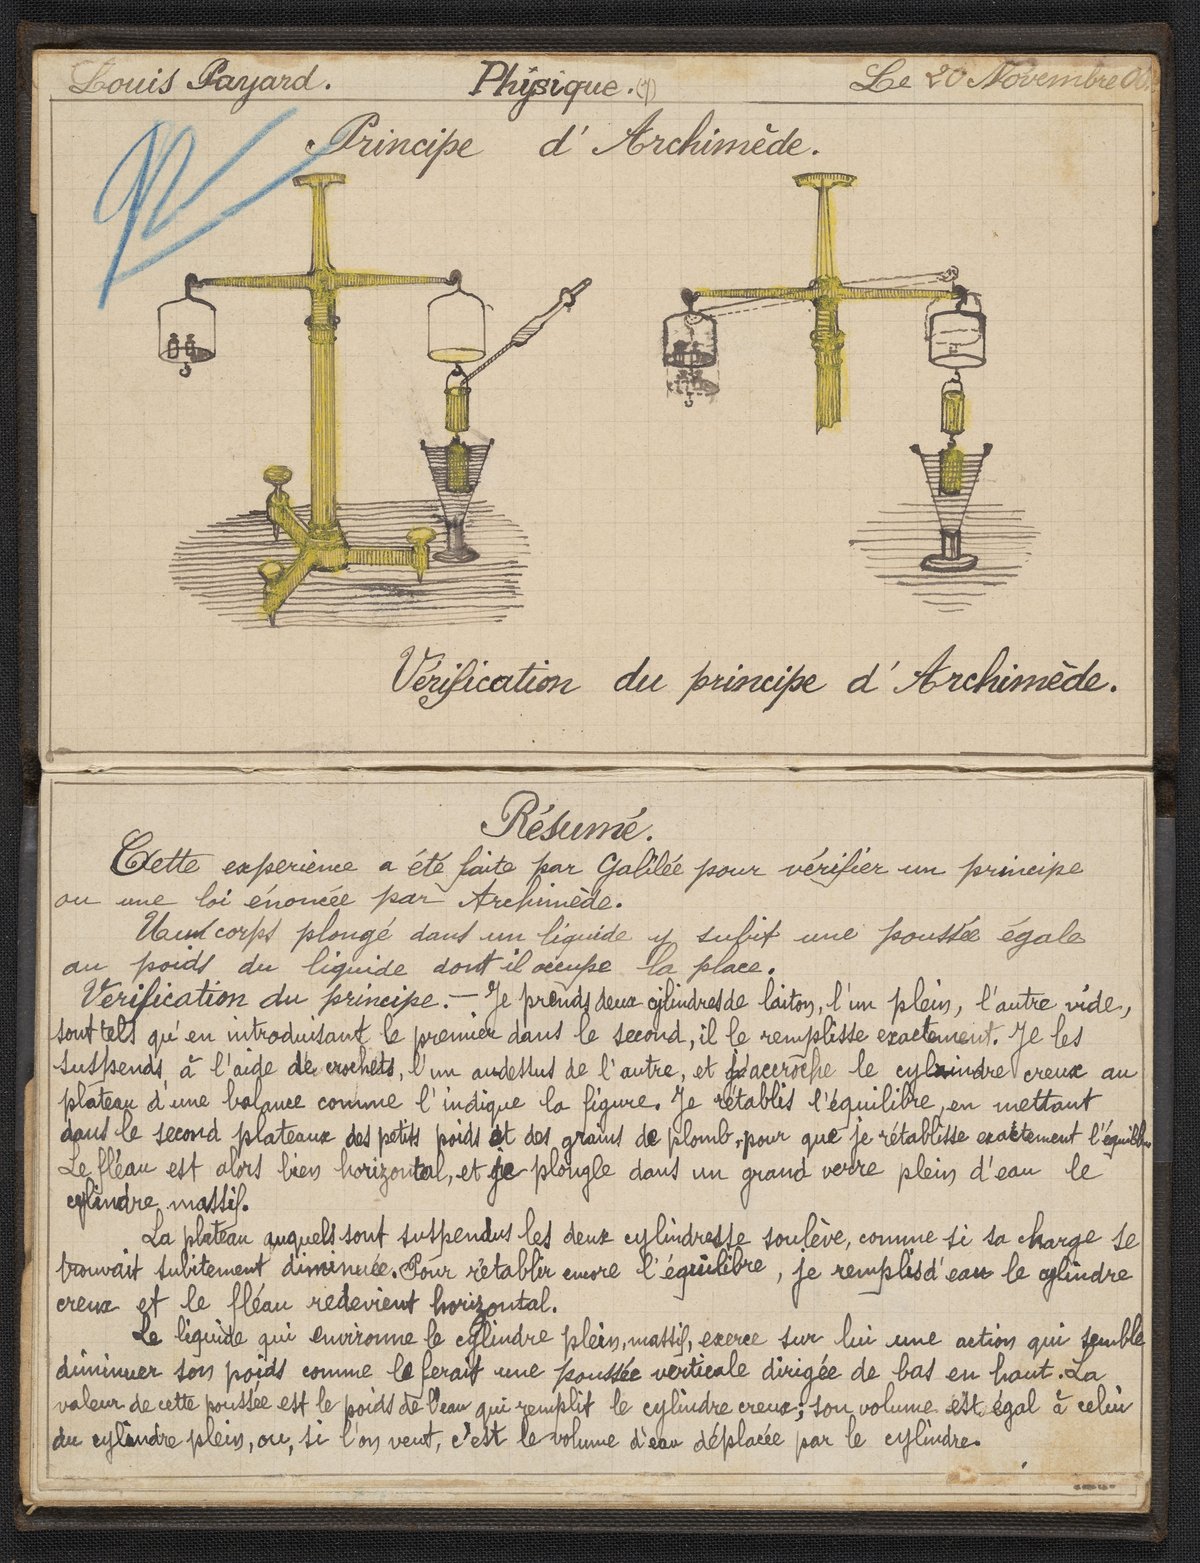 Louis Payard. Physique. Le 20 Novembre 00
Principe d' Archimède.
Vérification du principe d' Archimède.
Résumé.
Cette experience a été faite par Galilée pour vérifier un principe
ou une loi énoncée par Archimède.
Un corps plongé dans un liquide y subit une poussée égale
au poids du liquide dont il occupe la place.
Verification du principe. — Je prends deux cylindres de laiton, l'un plein, l'autre vide,
sont tels qu'en introduisant le premier dans le second, il le remplisse exactement. Je les
suspends, à l'aide de crochets, l'un audessus de l'autre, et j'accroche le cylindre creux au
plateau d'une balance comme l'indique la figure. Je rétablis l'équilibre, en mettant
dans le second plateaux des petits poids et des grains de plomb, pour que je rétablisse exactement l'équilibre
Le fléau est alors bien horizontal, et je plongle dans un grand verre plein d'eau le
cylindre massif.
La plateau auquels sont suspendus les deux cylindres se soulève, comme si sa charge se
trouvait subitement diminuée. Pour rétablir encore l'équilibre, je remplis d'eau le cylindre
creux et le fléau redevient horizontal.
Le liquide qui environne le cylindre plein, massif, exerce sur lui une action qui semble
diminuer son poids comme le ferait une poussée verticale dirigée de bas en haut. La
valeur de cette poussée est le poids de l'eau qui remplit le cylindre creux; son volume est égal à celui
du cylindre plein, ou, si l'on veut, c'est le volume d'eau déplacée par le cylindre.